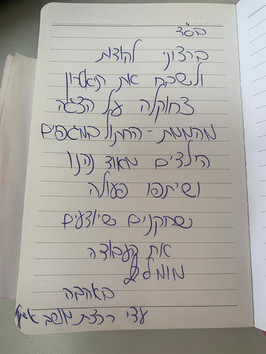 בס"ד
ברצוני להודות
ולשבח את תאטרון
צחוקלה על הצגה
מהממת - החתול במגפיים
הילדים מאוד נהנו
ושיתפו פעולה
שחקנים שיודעים
את העבודה
מומלץ
באהבה
עדי רכזת מושב